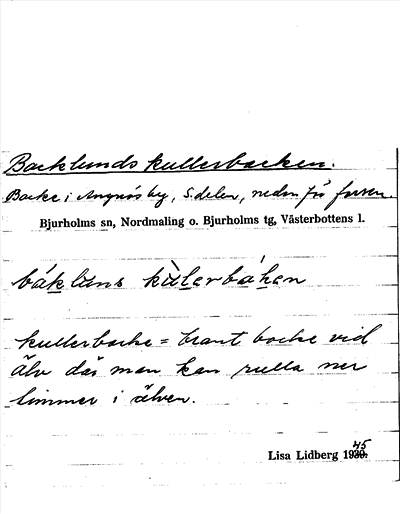 Backlunds kullerbacken.
Backe i Angnäs by, S. delen, nedan för forsen.
Bjurholms sn, Nordmaling o. Bjurholms tg, Västerbottens l.
báklùns kùlerbáken
kullerbacke = brant backe vid
älv där man kan rulla ner
timmer i älven.
Lisa Lidberg 1945